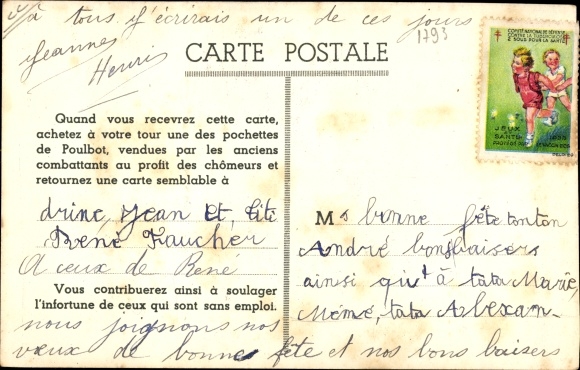 à tous j'écrirais un de ces jours
Jeannes
Henri
1793
CARTE POSTALE
COMITÉ NATIONAL DE DÉFENSE
CONTRE LA TUBERCULOSE
2 SOUS POUR LA SANTÉ
JEUX
SANTÉ
Quand vous recevrez cette carte,
achetez à votre tour une des pochettes
de Poulbot, vendues par les anciens
combattants au profit des chômeurs et
retournez une carte semblable à
drine, Jean et titi
René Faucher
A ceux de René
Vous contribuerez ainsi à soulager
l'infortune de ceux qui sont sans emploi.
nous joignons nos
vœux de bonne fête et nos bons baisers
M bonne fête tonton
André bons baisers
ainsi qu't à tata Marie,
Mémé, tata Alexan-